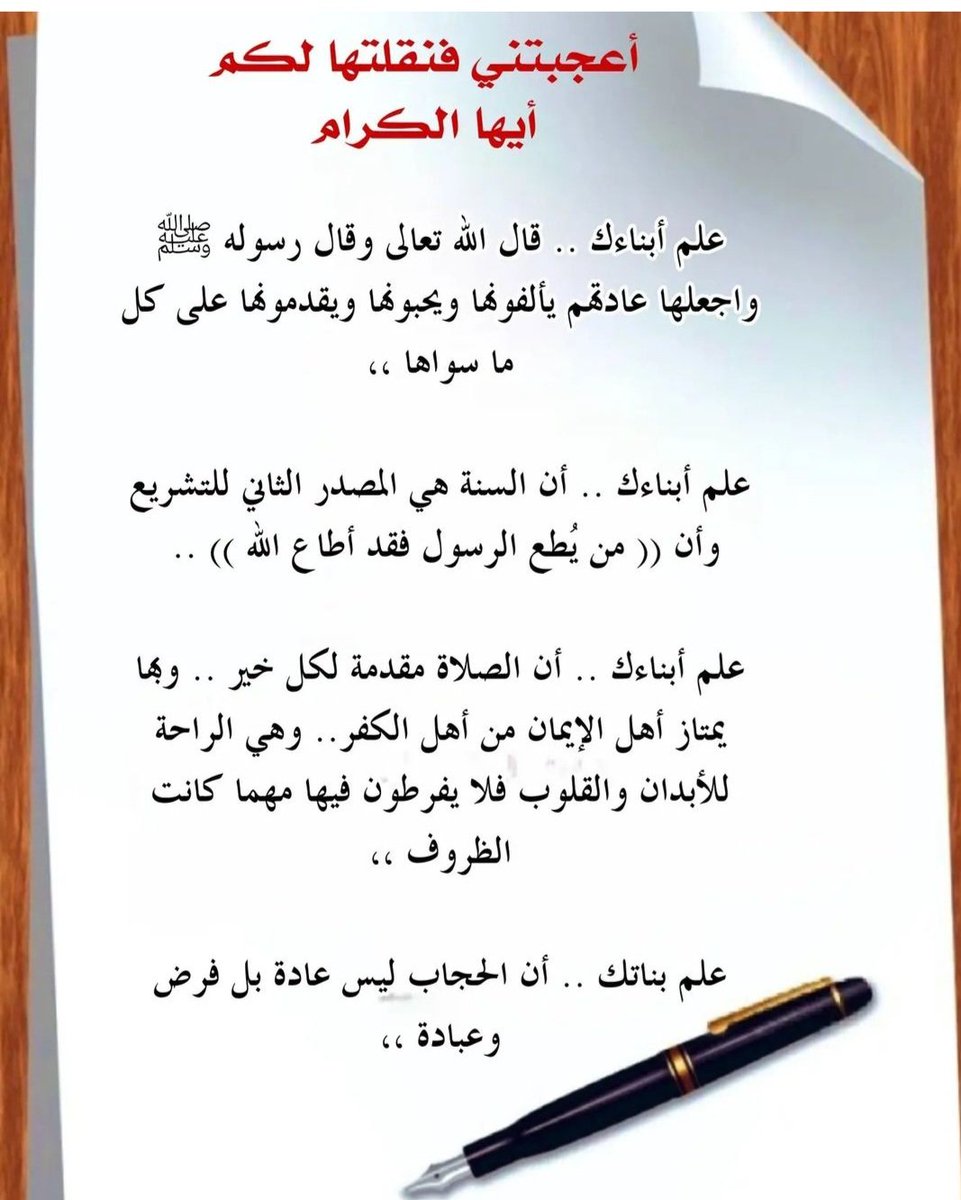 أعجبتني فنقلتها لكم
أيها الكرام
علم أبناءك .. قال الله تعالى وقال رسوله ﷺ
واجعلها عادتهم يألفونها ويحبونها ويقدمونها على كل
ما سواها ،،
علم أبناءك .. أن السنة هي المصدر الثاني للتشريع
وأن (( من يُطع الرسول فقد أطاع الله )) ..
علم أبناءك .. أن الصلاة مقدمة لكل خير .. وبها
يمتاز أهل الإيمان من أهل الكفر.. وهي الراحة
للأبدان والقلوب فلا يفرطون فيها مهما كانت
الظروف ،،
علم بناتك .. أن الحجاب ليس عادة بل فرض
وعبادة ،،